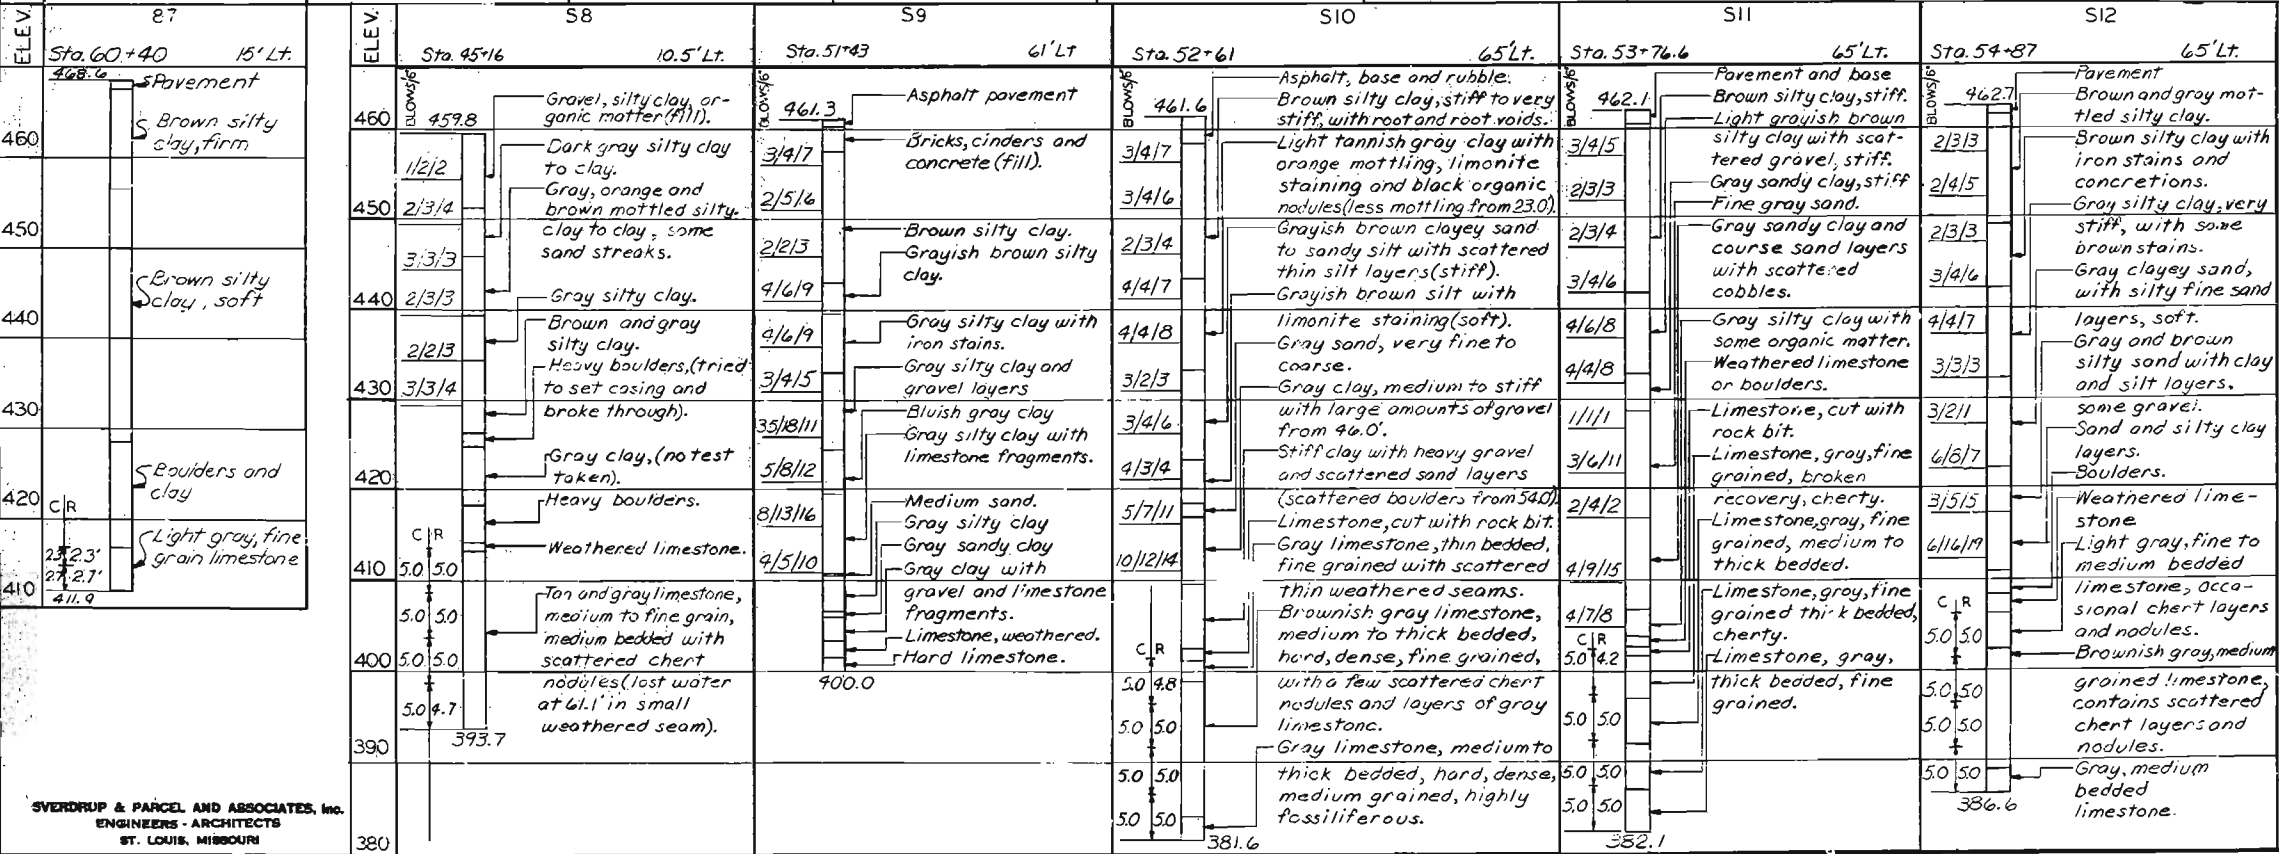 ELEV.
87
Sta. 60+40 15' Lt.
468.6
Pavement
Brown silty
clay, firm
Brown silty
clay, soft
Boulders and
clay
C R
Light gray, fine
grain limestone
2.3'
2.7'
411.9
460
450
440
430
420
410
SVERDRUP & PARCEL AND ASSOCIATES, Inc.
ENGINEERS - ARCHITECTS
ST. LOUIS, MISSOURI
ELEV.
460
450
440
430
420
410
400
390
380
S8
Sta. 45+16 10.5' Lt.
BLOWS/6"
459.8
1/2/2
2/3/4
3/3/3
2/3/3
2/2/3
3/3/4
C R
5.0 5.0
5.0 5.0
5.0 5.0
5.0 4.7
393.7
Gravel, silty clay, or-
ganic matter (fill).
Dark gray silty clay
to clay.
Gray, orange and
brown mottled silty
clay to clay, some
sand streaks.
Gray silty clay.
Brown and gray
silty clay.
Heavy boulders, (tried
to set casing and
broke through).
Gray clay, (no test
taken).
Heavy boulders.
Weathered limestone.
Tan and gray limestone,
medium to fine grain,
medium bedded with
scattered chert
nodules (lost water
at 61.1' in small
weathered seam).
S9
Sta. 51+43 61' Lt
BLOWS/6"
461.3
3/4/7
2/5/6
2/2/3
4/6/9
4/6/9
3/4/5
35/18/11
5/8/12
8/13/16
4/5/10
400.0
Asphalt pavement
Bricks, cinders and
concrete (fill).
Brown silty clay.
Grayish brown silty
clay.
Gray silty clay with
iron stains.
Gray silty clay and
gravel layers
Bluish gray clay
Gray silty clay with
limestone fragments.
Medium sand.
Gray silty clay
Gray sandy clay
Gray clay with
gravel and limestone
fragments.
Limestone, weathered.
Hard limestone.
S10
Sta. 52+61 65' Lt.
BLOWS/6"
461.6
3/4/7
3/4/6
2/3/4
4/4/7
4/4/8
3/2/3
3/4/6
4/3/4
5/7/11
10/12/14
C R
5.0 4.8
5.0 5.0
5.0 5.0
5.0 5.0
381.6
Asphalt, base and rubble.
Brown silty clay, stiff to very
stiff, with root and root voids.
Light tannish gray clay with
orange mottling, limonite
staining and black organic
nodules (less mottling from 23.0').
Grayish brown clayey sand
to sandy silt with scattered
thin silt layers (stiff).
Grayish brown silt with
limonite staining (soft).
Gray sand, very fine to
coarse.
Gray clay, medium to stiff
with large amounts of gravel
from 46.0'.
Stiff clay with heavy gravel
and scattered sand layers
(scattered boulders from 54.0').
Limestone, cut with rock bit.
Gray limestone, thin bedded,
fine grained with scattered
thin weathered seams.
Brownish gray limestone,
medium to thick bedded,
hard, dense, fine grained,
with a few scattered chert
nodules and layers of gray
limestone.
Gray limestone, medium to
thick bedded, hard, dense,
medium grained, highly
fossiliferous.
S11
Sta. 53+76.6 65' Lt.
BLOWS/6"
462.1
3/4/5
2/3/3
2/3/4
3/4/6
4/6/8
4/4/8
1/1/1
3/6/11
2/4/2
4/9/15
4/7/8
C R
5.0 4.2
5.0 5.0
5.0 5.0
5.0 5.0
382.1
Pavement and base
Brown silty clay, stiff.
Light grayish brown
silty clay with scat-
tered gravel, stiff.
Gray sandy clay, stiff
Fine gray sand.
Gray sandy clay and
course sand layers
with scattered
cobbles.
Gray silty clay with
some organic matter.
Weathered limestone
or boulders.
Limestone, cut with
rock bit.
Limestone, gray, fine
grained, broken
recovery, cherty.
Limestone, gray, fine
grained, medium to
thick bedded.
Limestone, gray, fine
grained thick bedded,
cherty.
Limestone, gray,
thick bedded, fine
grained.
S12
Sta. 54+87 65' Lt.
BLOWS/6"
462.7
2/3/3
2/4/5
2/3/3
3/4/6
4/4/7
3/3/3
3/2/1
6/8/7
3/5/5
6/16/19
C R
5.0 5.0
5.0 5.0
5.0 5.0
5.0 5.0
386.6
Pavement
Brown and gray mot-
tled silty clay.
Brown silty clay with
iron stains and
concretions.
Gray silty clay, very
stiff, with some
brown stains.
Gray clayey sand,
with silty fine sand
layers, soft.
Gray and brown
silty sand with clay
and silt layers,
some gravel.
Sand and silty clay
layers.
Boulders.
Weathered lime-
stone
Light gray, fine to
medium bedded
limestone, occa-
sional chert layers
and nodules.
Brownish gray, medium
grained limestone,
contains scattered
chert layers and
nodules.
Gray, medium
bedded
limestone.